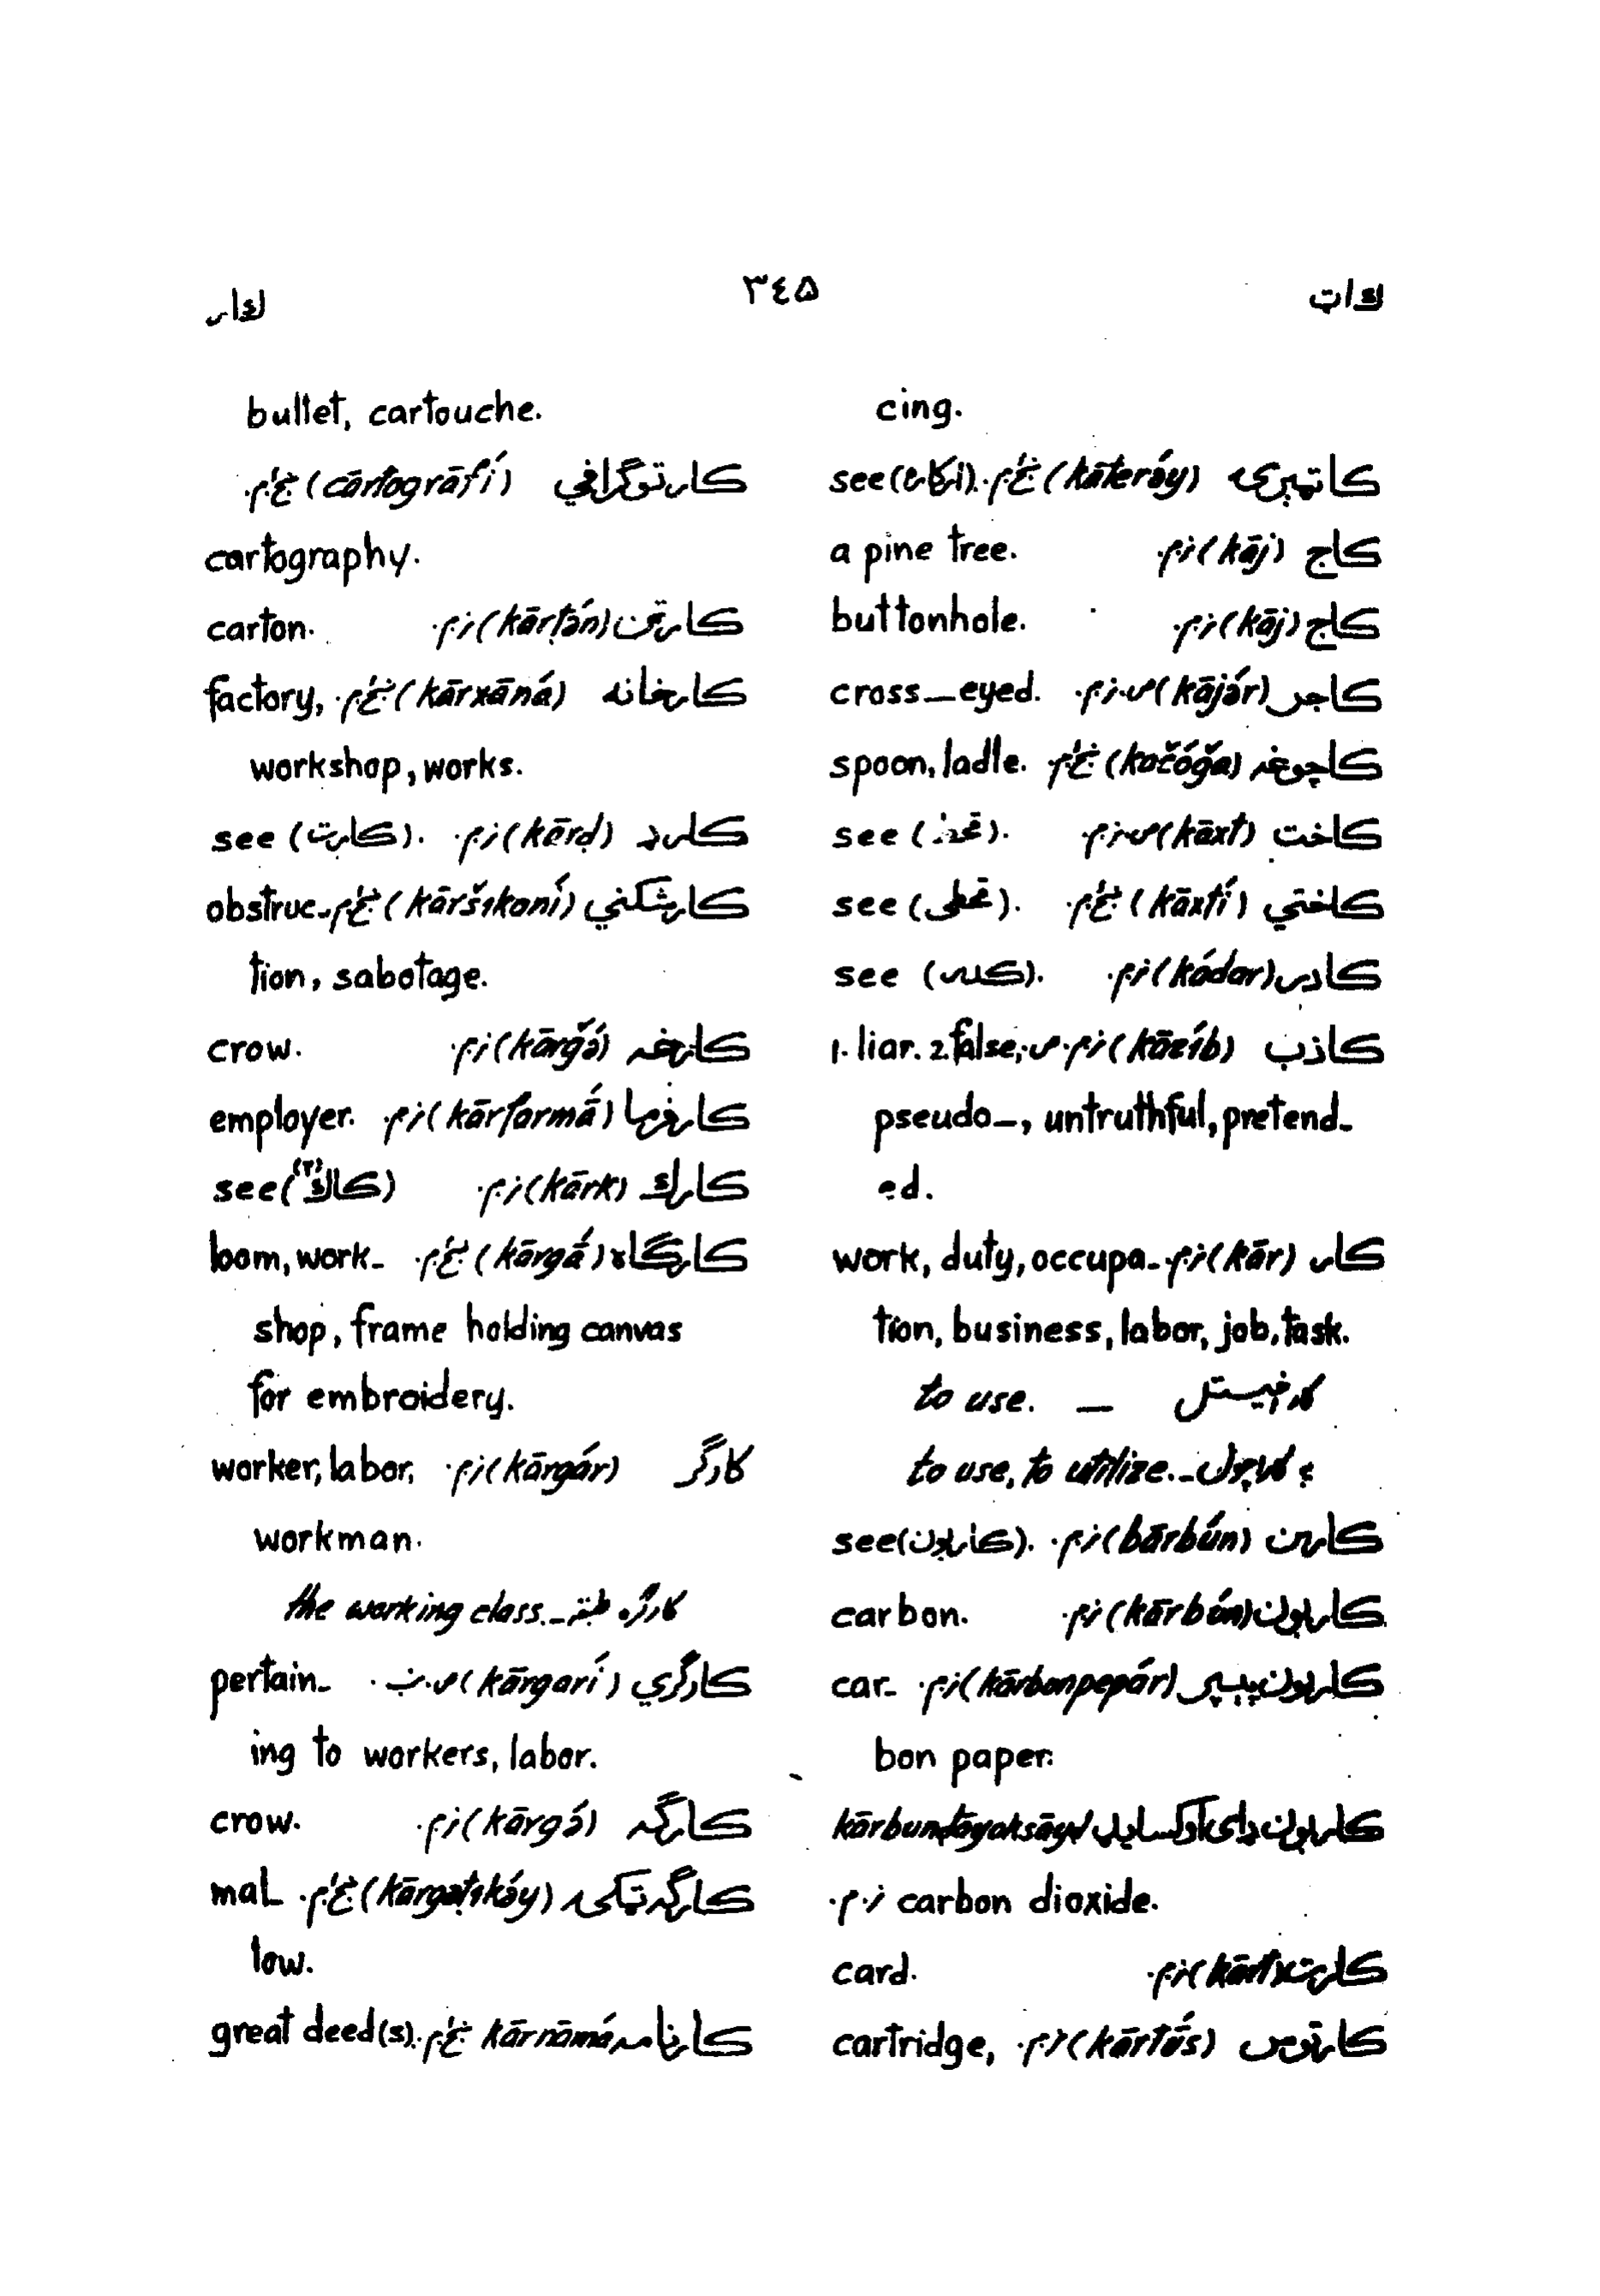 کات ۳٤۵ کار
cing.
کاتېرۍ (kāteráy) غ‎/‎م. see
کاج (kāj) ن‎.‎م. a pine tree.
کاج (kāj) ن‎.‎م. buttonhole.
کاجر (kājár) ص. ن‎.‎م. cross_eyed.
کاچوغه (kačóğa) غ‎/‎م spoon, ladle.
کاخت (kāxt) ص. ن‎.‎م. see
کاختي (kāxtí) غ‎/‎م. see
کادر (kádar) ن‎.‎م. see (کدر).
کاذب (kāzíb) ن‎.‎م. ص. 1. liar. 2. false,
pseudo_, untruthful, pretend_
ed.
کار (kār) ن‎.‎م. work, duty, occupa_
tion, business, labor, job, task.
کار اخيستل _ to use.
په کار اچول _ to use, to utilize.
کاربن (bārbún) ن‎.‎م. see (کاربون).
کاربون (kārbún) ن‎.‎م. carbon.
کاربون پيپر (kārbonpepár) ن‎.‎م. car_
bon paper.
کاربون دای اوکسايد kārbundāyoksāyd
ن‎.‎م. carbon dioxide.
کارت (kārt) ن‎.‎م. card.
کارتوس (kārtús) ن‎.‎م. cartridge,
bullet, cartouche.
کارتوگرافي (cārtogrāfí) غ‎/‎م.
cartography.
کارټن (kārṭán) ن‎.‎م. carton.
کارخانه (kārxāná) غ‎/‎م. factory,
workshop, works.
کارډ (kārḍ) ن‎.‎م. see (کارت).
کارشکني (kāršıkaní) غ‎/‎م. obstruc_
tion, sabotage.
کارغه (kārğə́) ن‎.‎م. crow.
کارفرما (kārfarmā́) ن‎.‎م. employer.
کارک (kārk) ن‎.‎م. see (کاک(۲))
کارگاه (kārgā́) غ‎/‎م. loom, work_
shop, frame holding canvas
for embroidery.
کارگر (kārgár) ن‎.‎م. worker, labor,
workman.
کارگره طبقه _ the working class.
کارگري (kārgarí) ص. ن. pertain_
ing to workers, labor.
کارگه (kārgə́) ن‎.‎م. crow.
کارگه ټکۍ (kārgaṭıkáy) غ‎/‎م. mal_
low.
کارنامه kārnāmá غ‎/‎م. great deed(s).